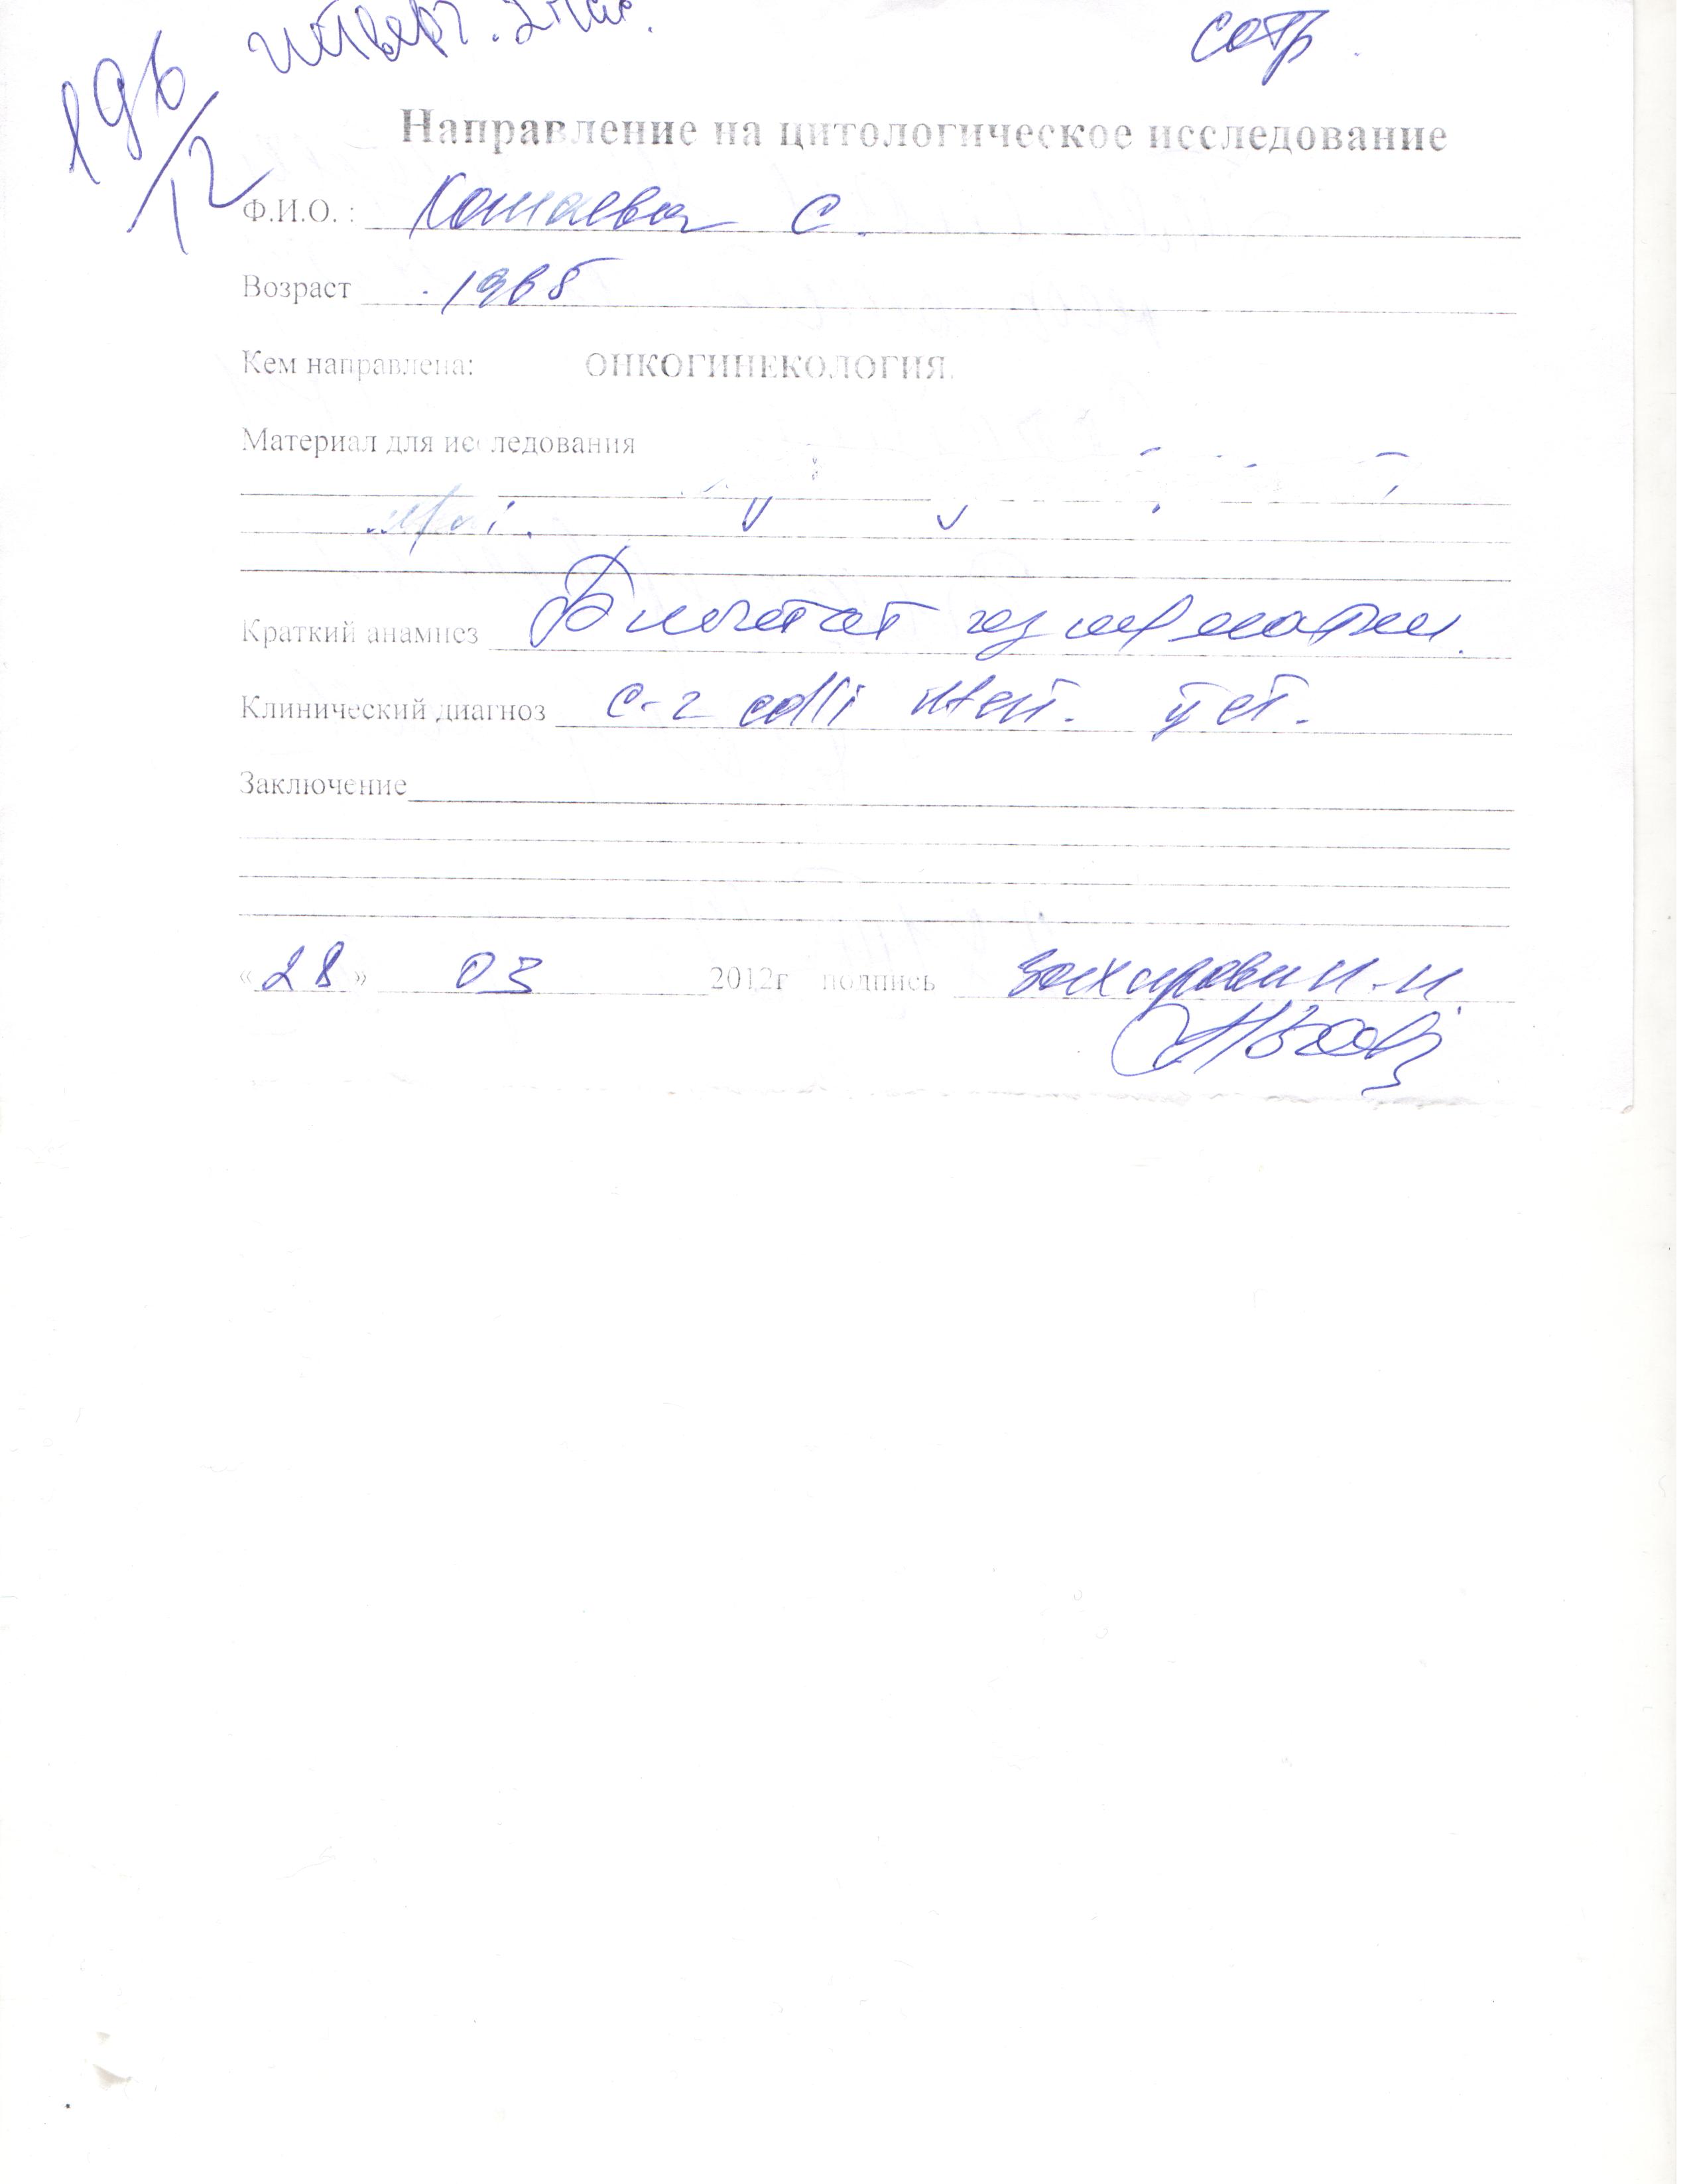 четверг. 2 час.
сотр.
196/12
Направление на цитологическое исследование
Ф.И.О. : Кошаева С.
Возраст 1968
Кем направлена: ОНКОГИНЕКОЛОГИЯ.
Материал для исследования
Краткий анамнез из матки.
Клинический диагноз c-r colli uteri.
Заключение
« 28 » 03 2012г подпись Захирова И.И.